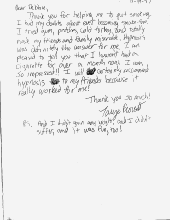 Dear Debbie,
Thank you for helping me to quit smoking.
I had my doubts about ever becoming smoke free.
I tried gum, patches, cold turkey, and really
made my friends and family miserable. Hypnosis
was definitely the answer for me. I am
pleased to tell you that I haven't had a
cigarette for over a month now! I am
so impressed!! I will certainly recommend
hypnosis to my friends because it
really worked for me!
Thank you so much!
P.S. And I didn't gain any weight, and I didn't
suffer, and it was fun, too!